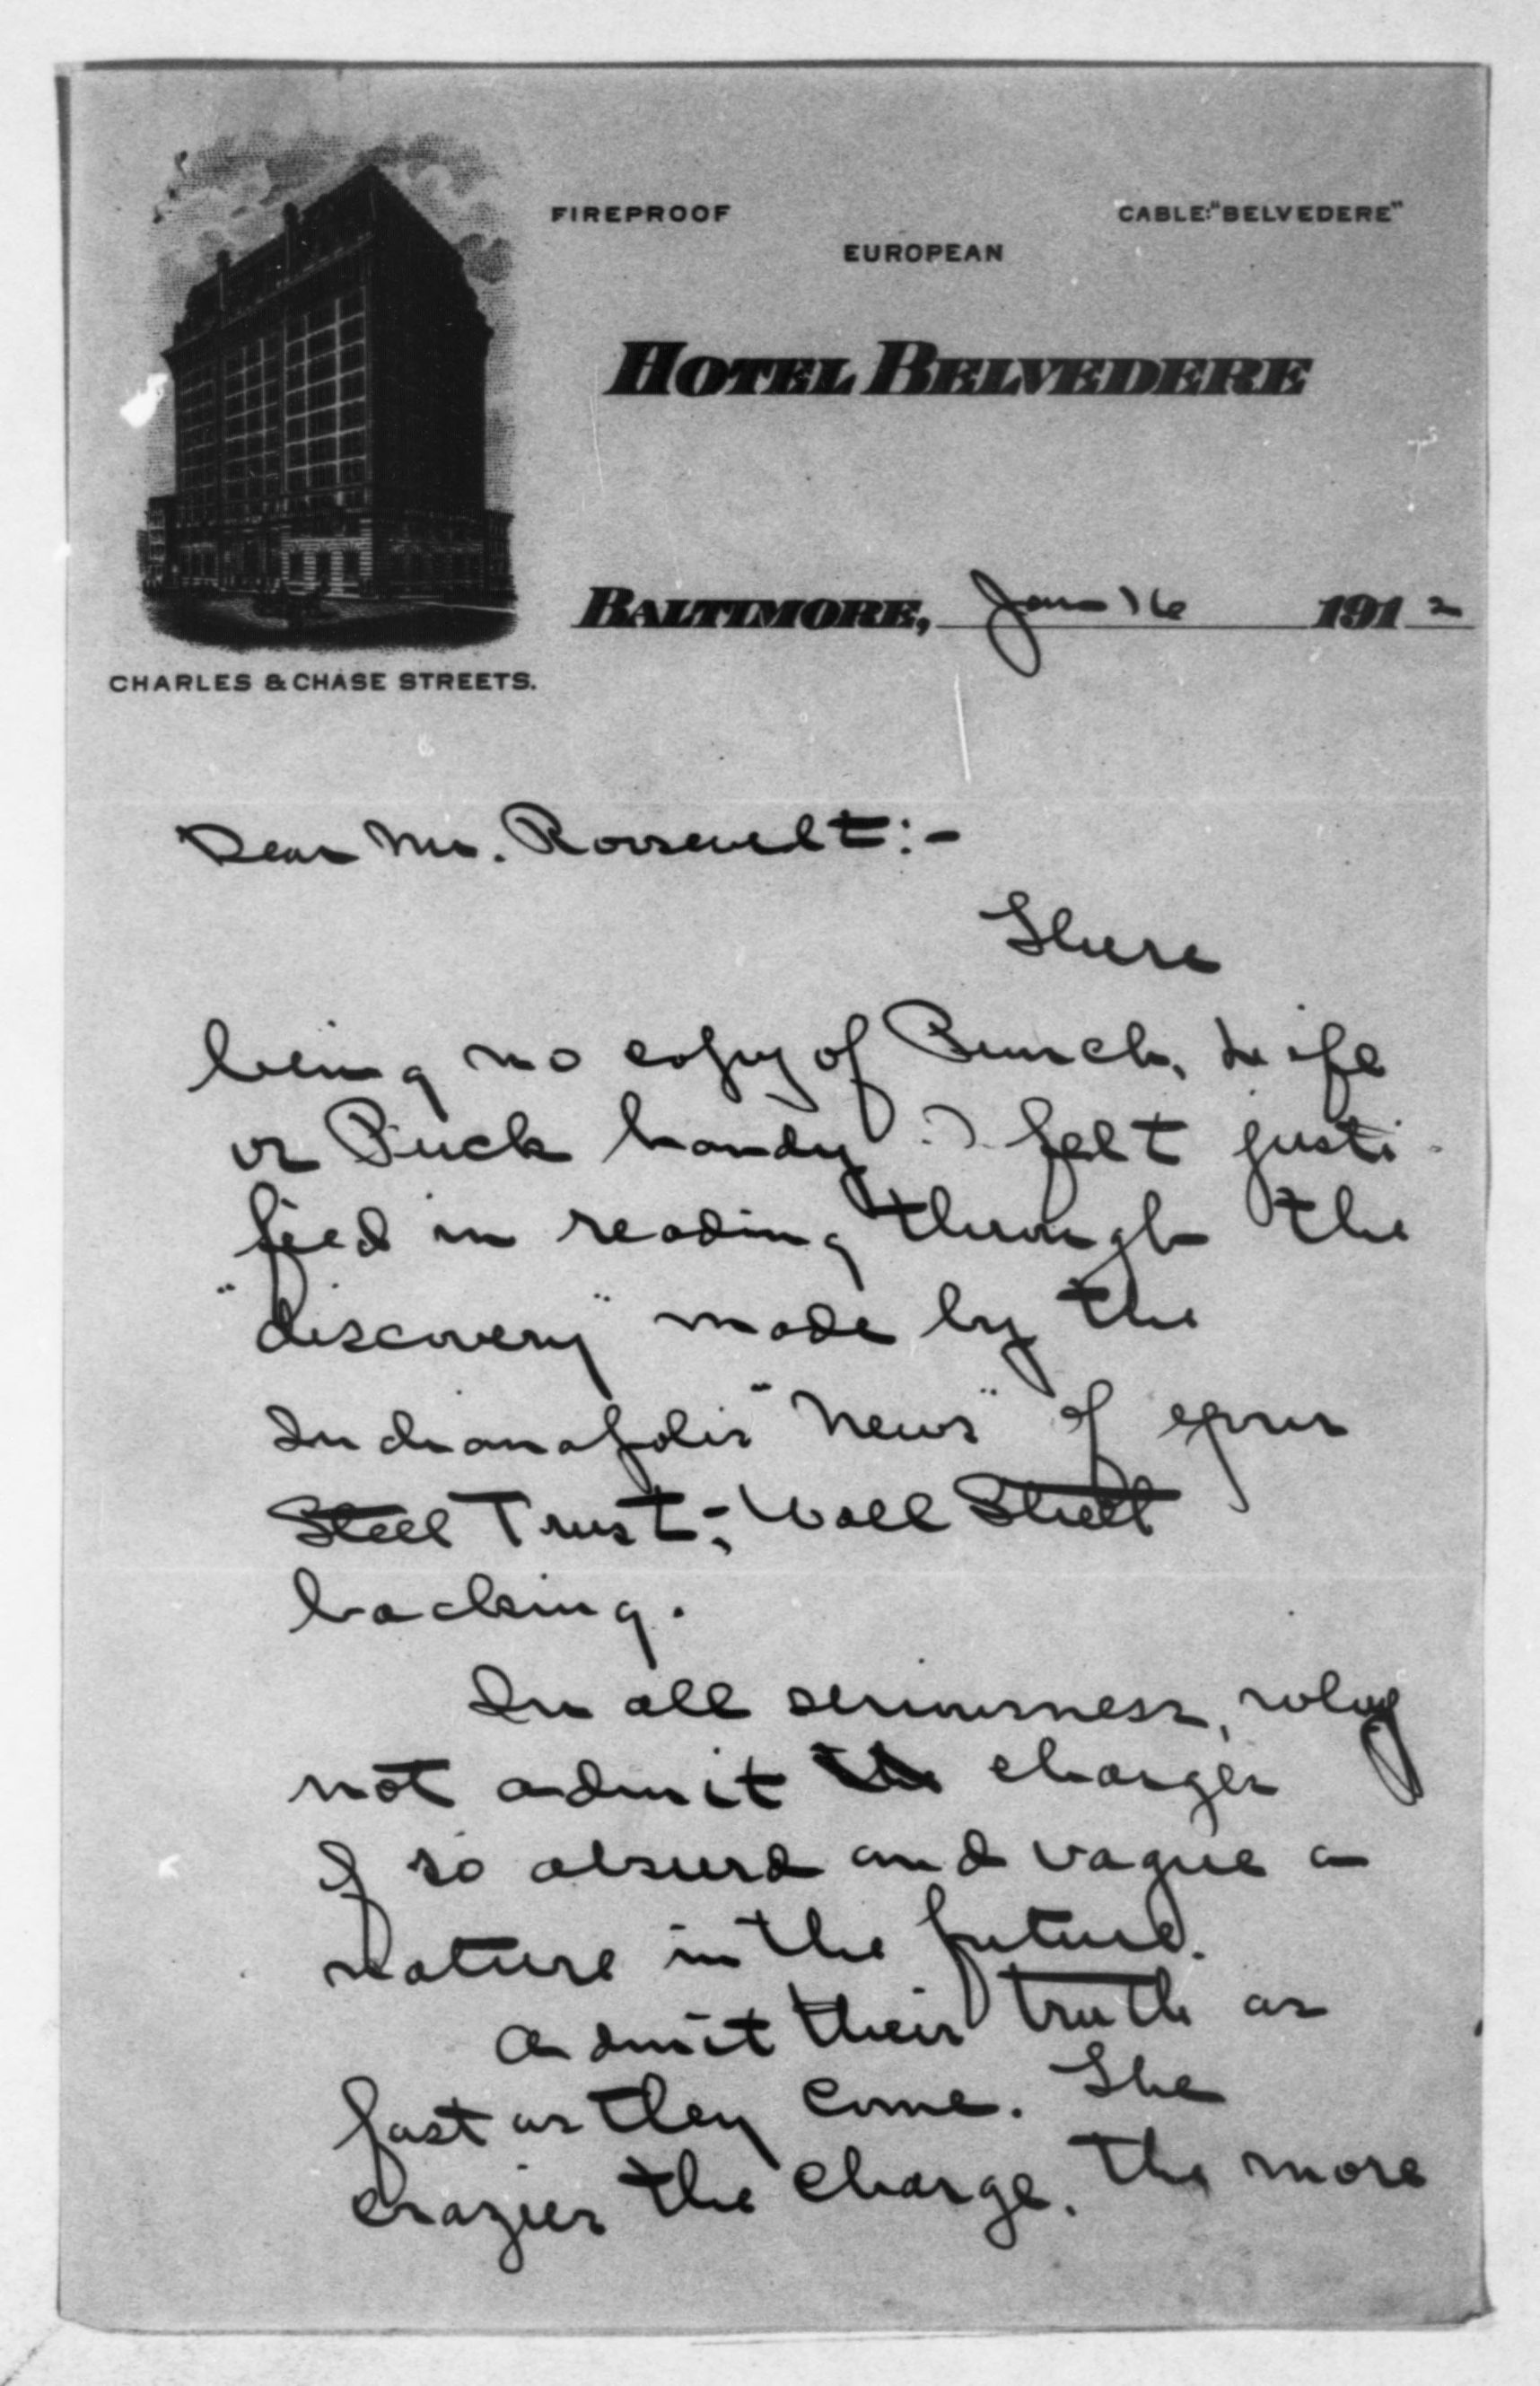 FIREPROOF
CABLE: "BELVEDERE"
EUROPEAN
HOTEL BELVEDERE
BALTIMORE, Jan 16 1912
CHARLES & CHASE STREETS.
Dear Mr. Roosevelt:-
There
being no copy of Punch, Life
or Puck handy I felt justi-
fied in reading through the
"discovery" made by the
Indianapolis "News" of your
Steel Trust-, Wall Street
backing.
In all seriousness, why
not admit the charges
of so absurd and vague a
nature in the future.
Admit their truth as
fast as they come. The
crazier the charge, the more